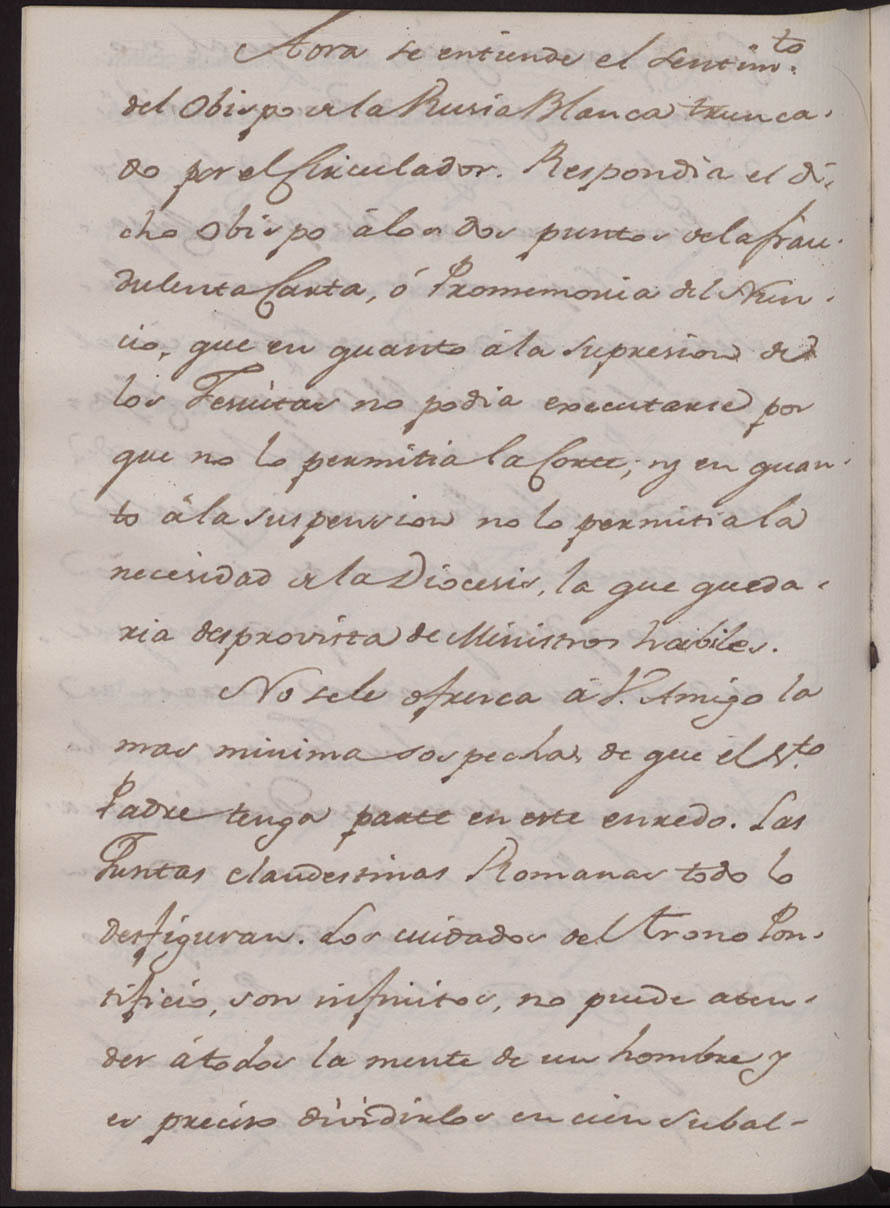 Aora se entiende el sentim.to
del Obispo de la Rusia Blanca trunca-
do por el Circulador. Respondia el di-
cho Obispo á los dos puntos de la frau-
dulenta Carta, ó Promemoria del Nun-
cio, que en quanto á la supresion de
los Jesuitas no podia executarse por
que no lo permitia la Corte; y en quan-
to á la suspension no lo permitia la
necesidad de la Diocesis, la que queda-
ria desprovista de Ministros habiles.
No se le ofrezca á V. Amigo la
mas minima sospecha de que el S.to
Padre tenga parte en este enredo. Las
Juntas clandestinas Romanas todo lo
desfiguran. Los cuidados del trono Pon-
tificio, son infinitos, no puede aten-
der á todos la mente de un hombre y
es preciso dividirlos en cien subal-